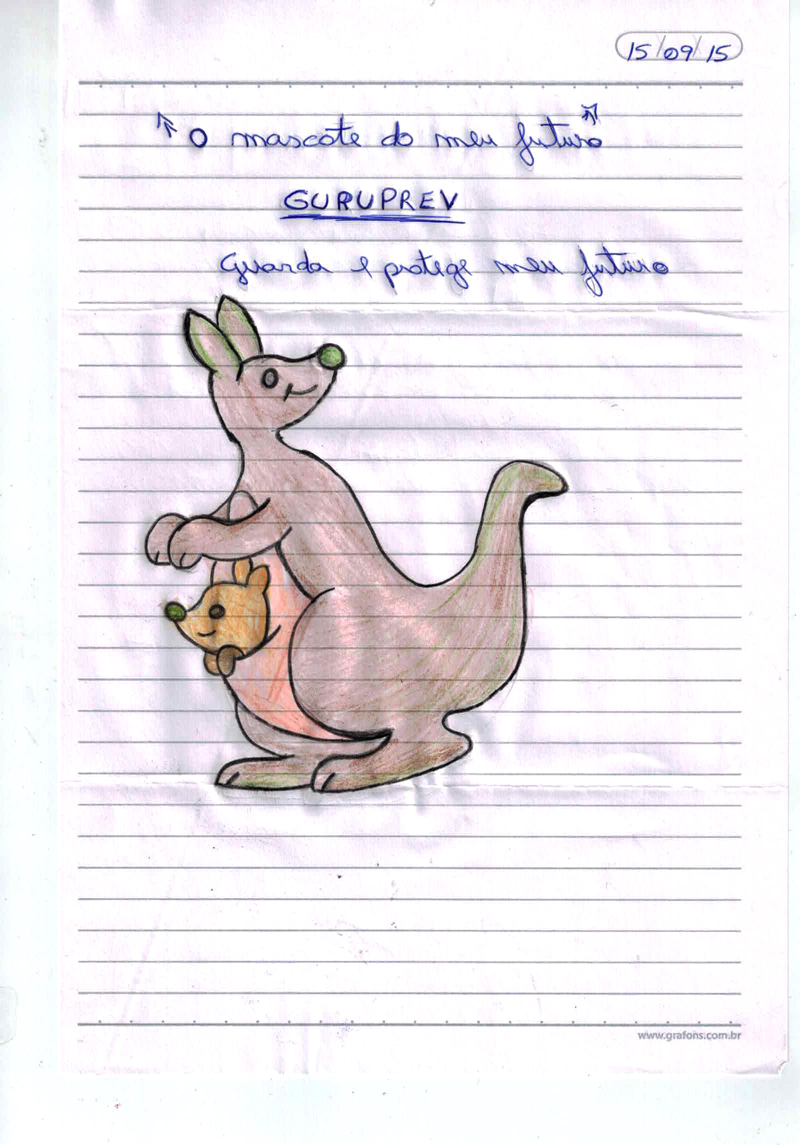 15/09/15
O mascote do meu futuro
GURUPREV
Guarda e protege meu futuro
www.grafons.com.br